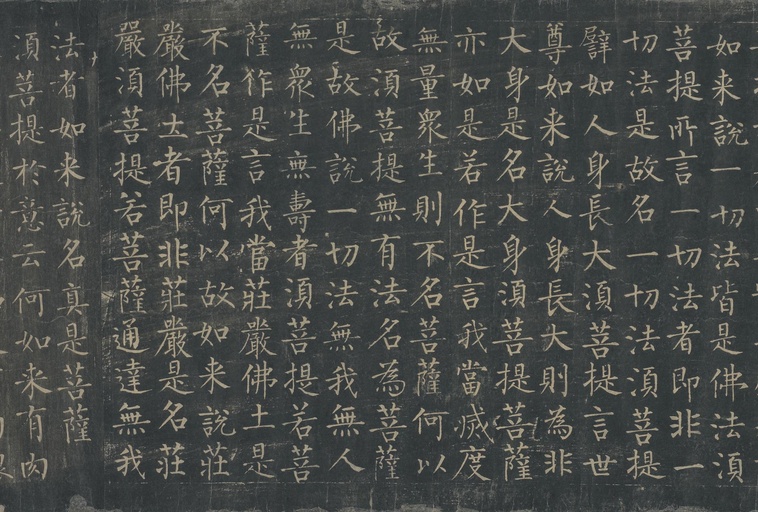 如来説一切法皆是佛法湏
菩提所言一切法者即非一
切法是故名一切法湏菩提
譬如人身長大湏菩提言世
尊如来說人身長大則為非
大身是名大身湏菩提菩薩
亦如是若作是言我當滅度
無量衆生則不名菩薩何以
故湏菩提無有法名為菩薩
是故佛説一切法無我無人
無衆生無壽者湏菩提若菩
薩作是言我當莊嚴佛土是
不名菩薩何以故如来説莊
嚴佛土者即非莊嚴是名莊
嚴湏菩提若菩薩通達無我
法者如来説名真是菩薩
湏菩提於意云何如来有肉